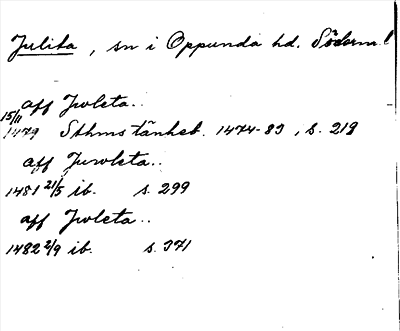 Julita, sn i Oppunda hd. Söderml
aff Jwleta..
15/11
1479 Sthms tänkeb. 1474-83, s. 219
aff Juwleta..
1481 21/5 ib. s. 299
aff Jwleta..
1482 2/9 ib. s. 371